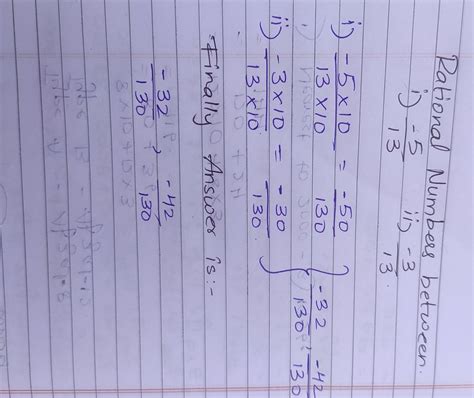 Rational Numbers between.
i) -5/13 ii) -3/13.
i) -5×10/13×10 = -50/130 } -32/130, -42/130
ii) -3×10/13×10 = -30/130.
Finally Answer is:-
-32/130, -42/130